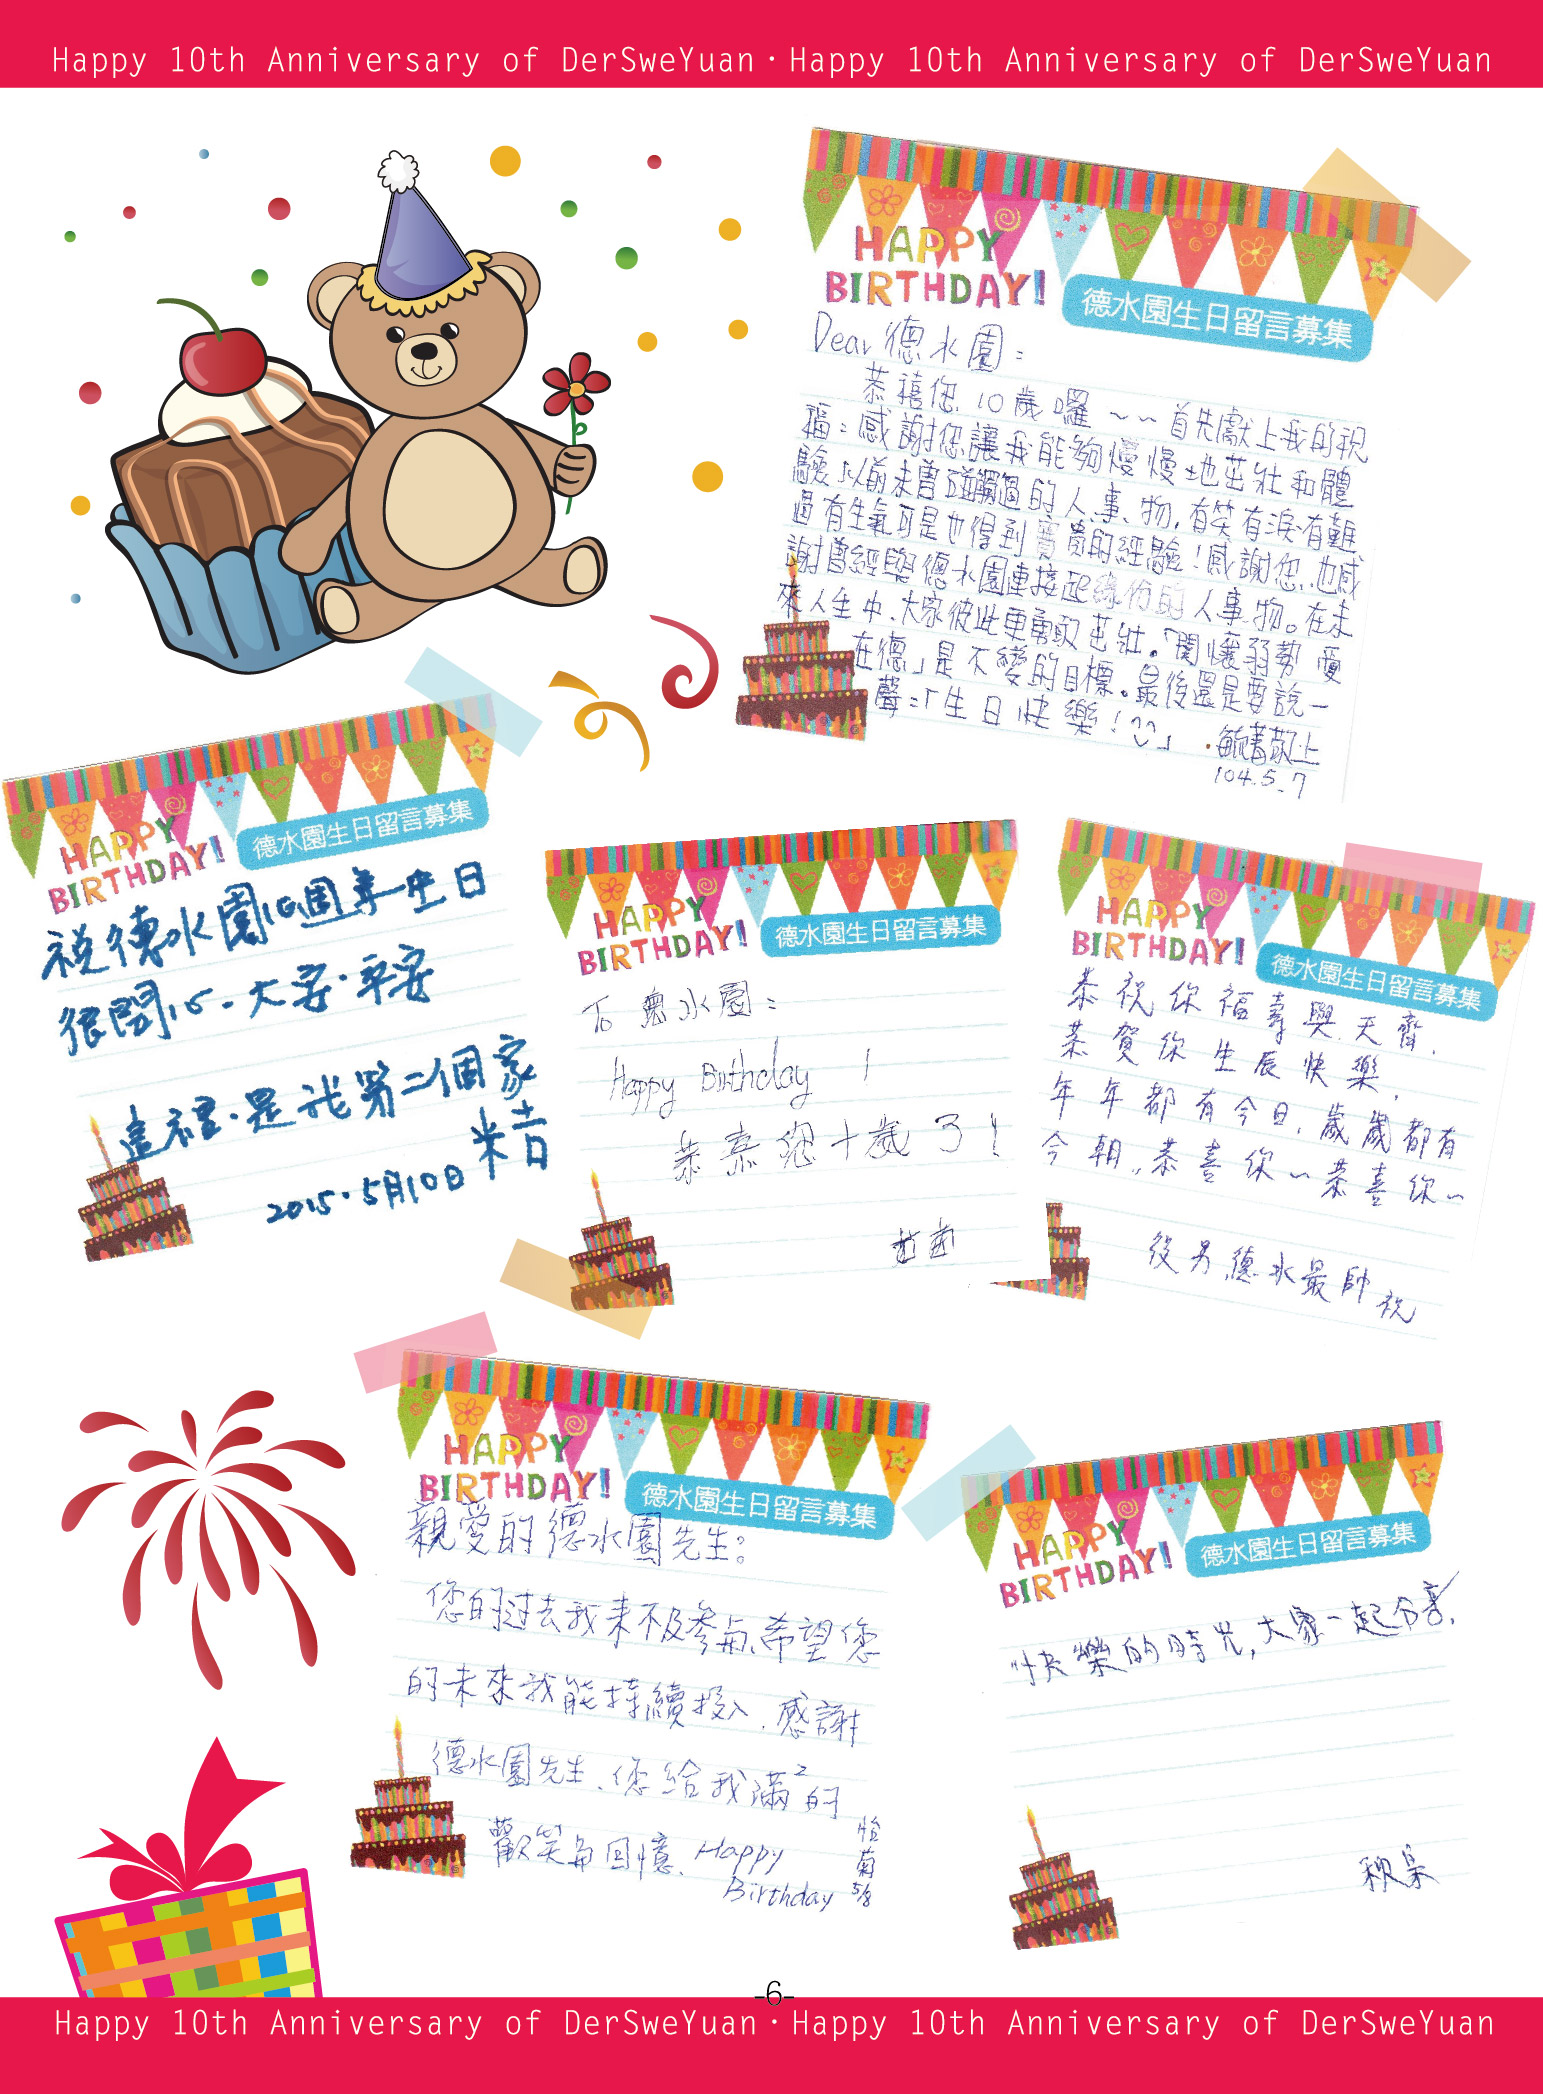 Happy 10th Anniversary of DerSweYuan·Happy 10th Anniversary of DerSweYuan
HAPPY
BIRTHDAY!
德水園生日留言募集
Dear 德水園:
恭禧您10歲囉~~首先獻上我的祝
福:感謝您讓我能夠慢慢地茁壯和體
驗以前未曾碰觸過的人、事、物,有笑有淚有難
過有生氣可是也得到寶貴的經驗!感謝您,也感
謝曾經與德水園連接起緣份的人事物。在未
來人生中,大家彼此更勇敢茁壯。「關懷弱勢 愛
在德」是不變的目標。最後還是要說一
聲:「生日快樂!」
敬上
104.5.7
HAPPY
BIRTHDAY!
德水園生日留言募集
祝德水園10週年生日
很開心.大家.平安
這裡.是我第二個家
2015.5月10日
HAPPY
BIRTHDAY!
德水園生日留言募集
To 德水園:
Happy Birthday !
恭喜您十歲了!
HAPPY
BIRTHDAY!
德水園生日留言募集
恭祝你福壽與天齊,
恭賀你生辰快樂,
年年都有今日,歲歲都有
今朝,恭喜你~恭喜你~
役男德水最帥 祝
HAPPY
BIRTHDAY!
德水園生日留言募集
親愛的德水園先生:
您的过去我来不及參與,希望您
的未來我能持續投入,感謝
德水園先生,您給我滿²的
歡笑與回憶,Happy
Birthday
怡菊
5/8
HAPPY
BIRTHDAY!
德水園生日留言募集
快樂的時光,大家一起分享,
-6-
Happy 10th Anniversary of DerSweYuan·Happy 10th Anniversary of DerSweYuan